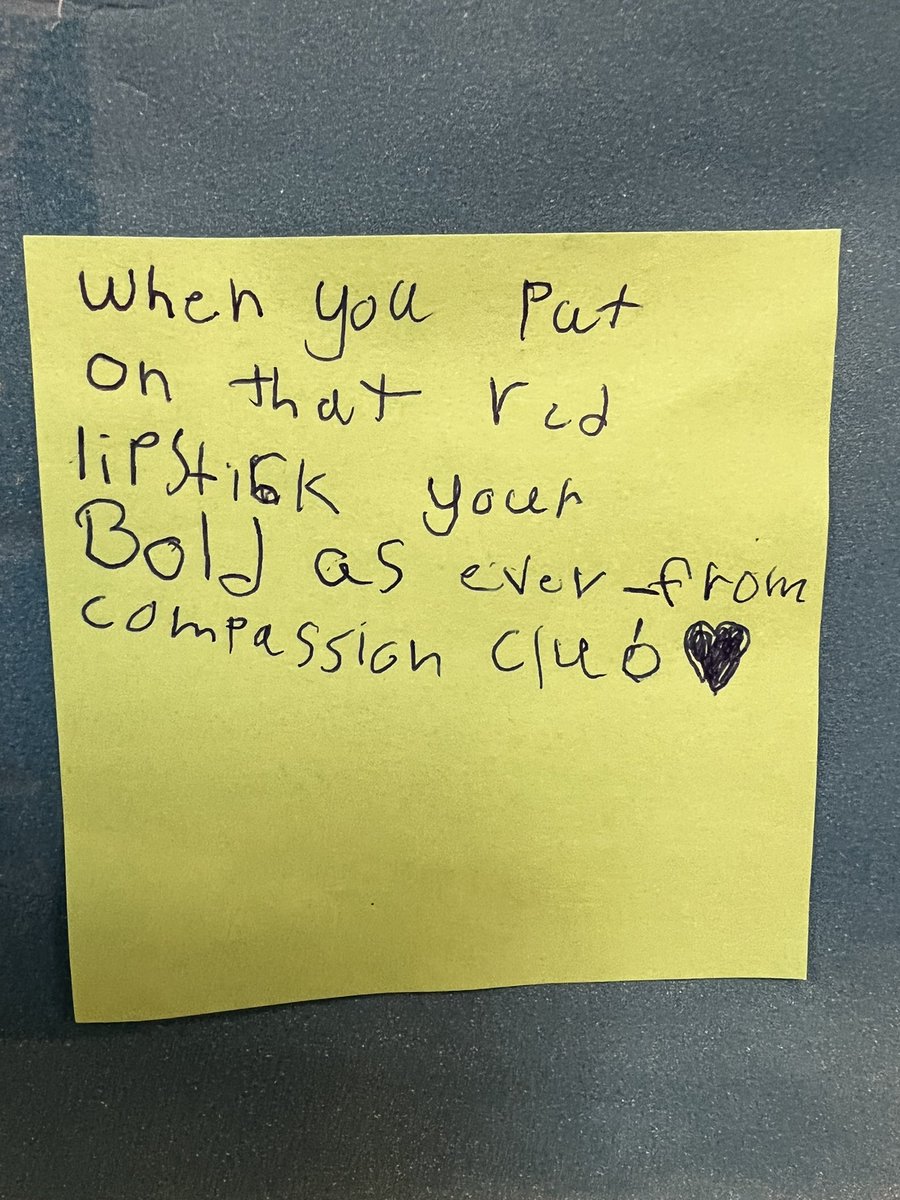 When you Put
on that red
lipstick your
Bold as ever from
compassion club